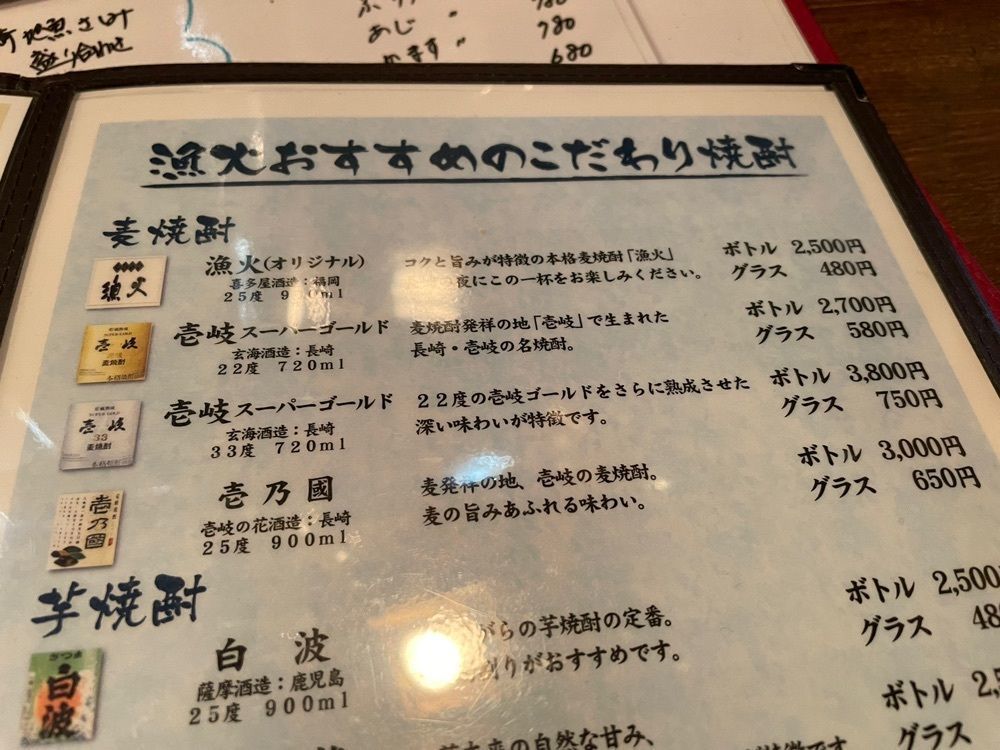 地魚さしみ
盛り合わせ
あじ 〃 780
〃 680
漁火おすすめのこだわり焼酎
麦焼酎
漁火(オリジナル)
喜多屋酒造:福岡
25度 900ml
コクと旨みが特徴の本格麦焼酎「漁火」
夜にこの一杯をお楽しみください。
ボトル 2,500円
グラス 480円
壱岐スーパーゴールド
玄海酒造:長崎
22度 720ml
麦焼酎発祥の地「壱岐」で生まれた
長崎・壱岐の名焼酎。
ボトル 2,700円
グラス 580円
壱岐スーパーゴールド
玄海酒造:長崎
33度 720ml
22度の壱岐ゴールドをさらに熟成させた
深い味わいが特徴です。
ボトル 3,800円
グラス 750円
壱乃國
壱岐の花酒造:長崎
25度 900ml
麦発祥の地、壱岐の麦焼酎。
麦の旨みあふれる味わい。
ボトル 3,000円
グラス 650円
芋焼酎
白波
薩摩酒造:鹿児島
25度 900ml
がらの芋焼酎の定番。
割りがおすすめです。
ボトル 2,500
グラス 48
ボトル 2,5
グラス
本来の自然な甘み、
が特徴です